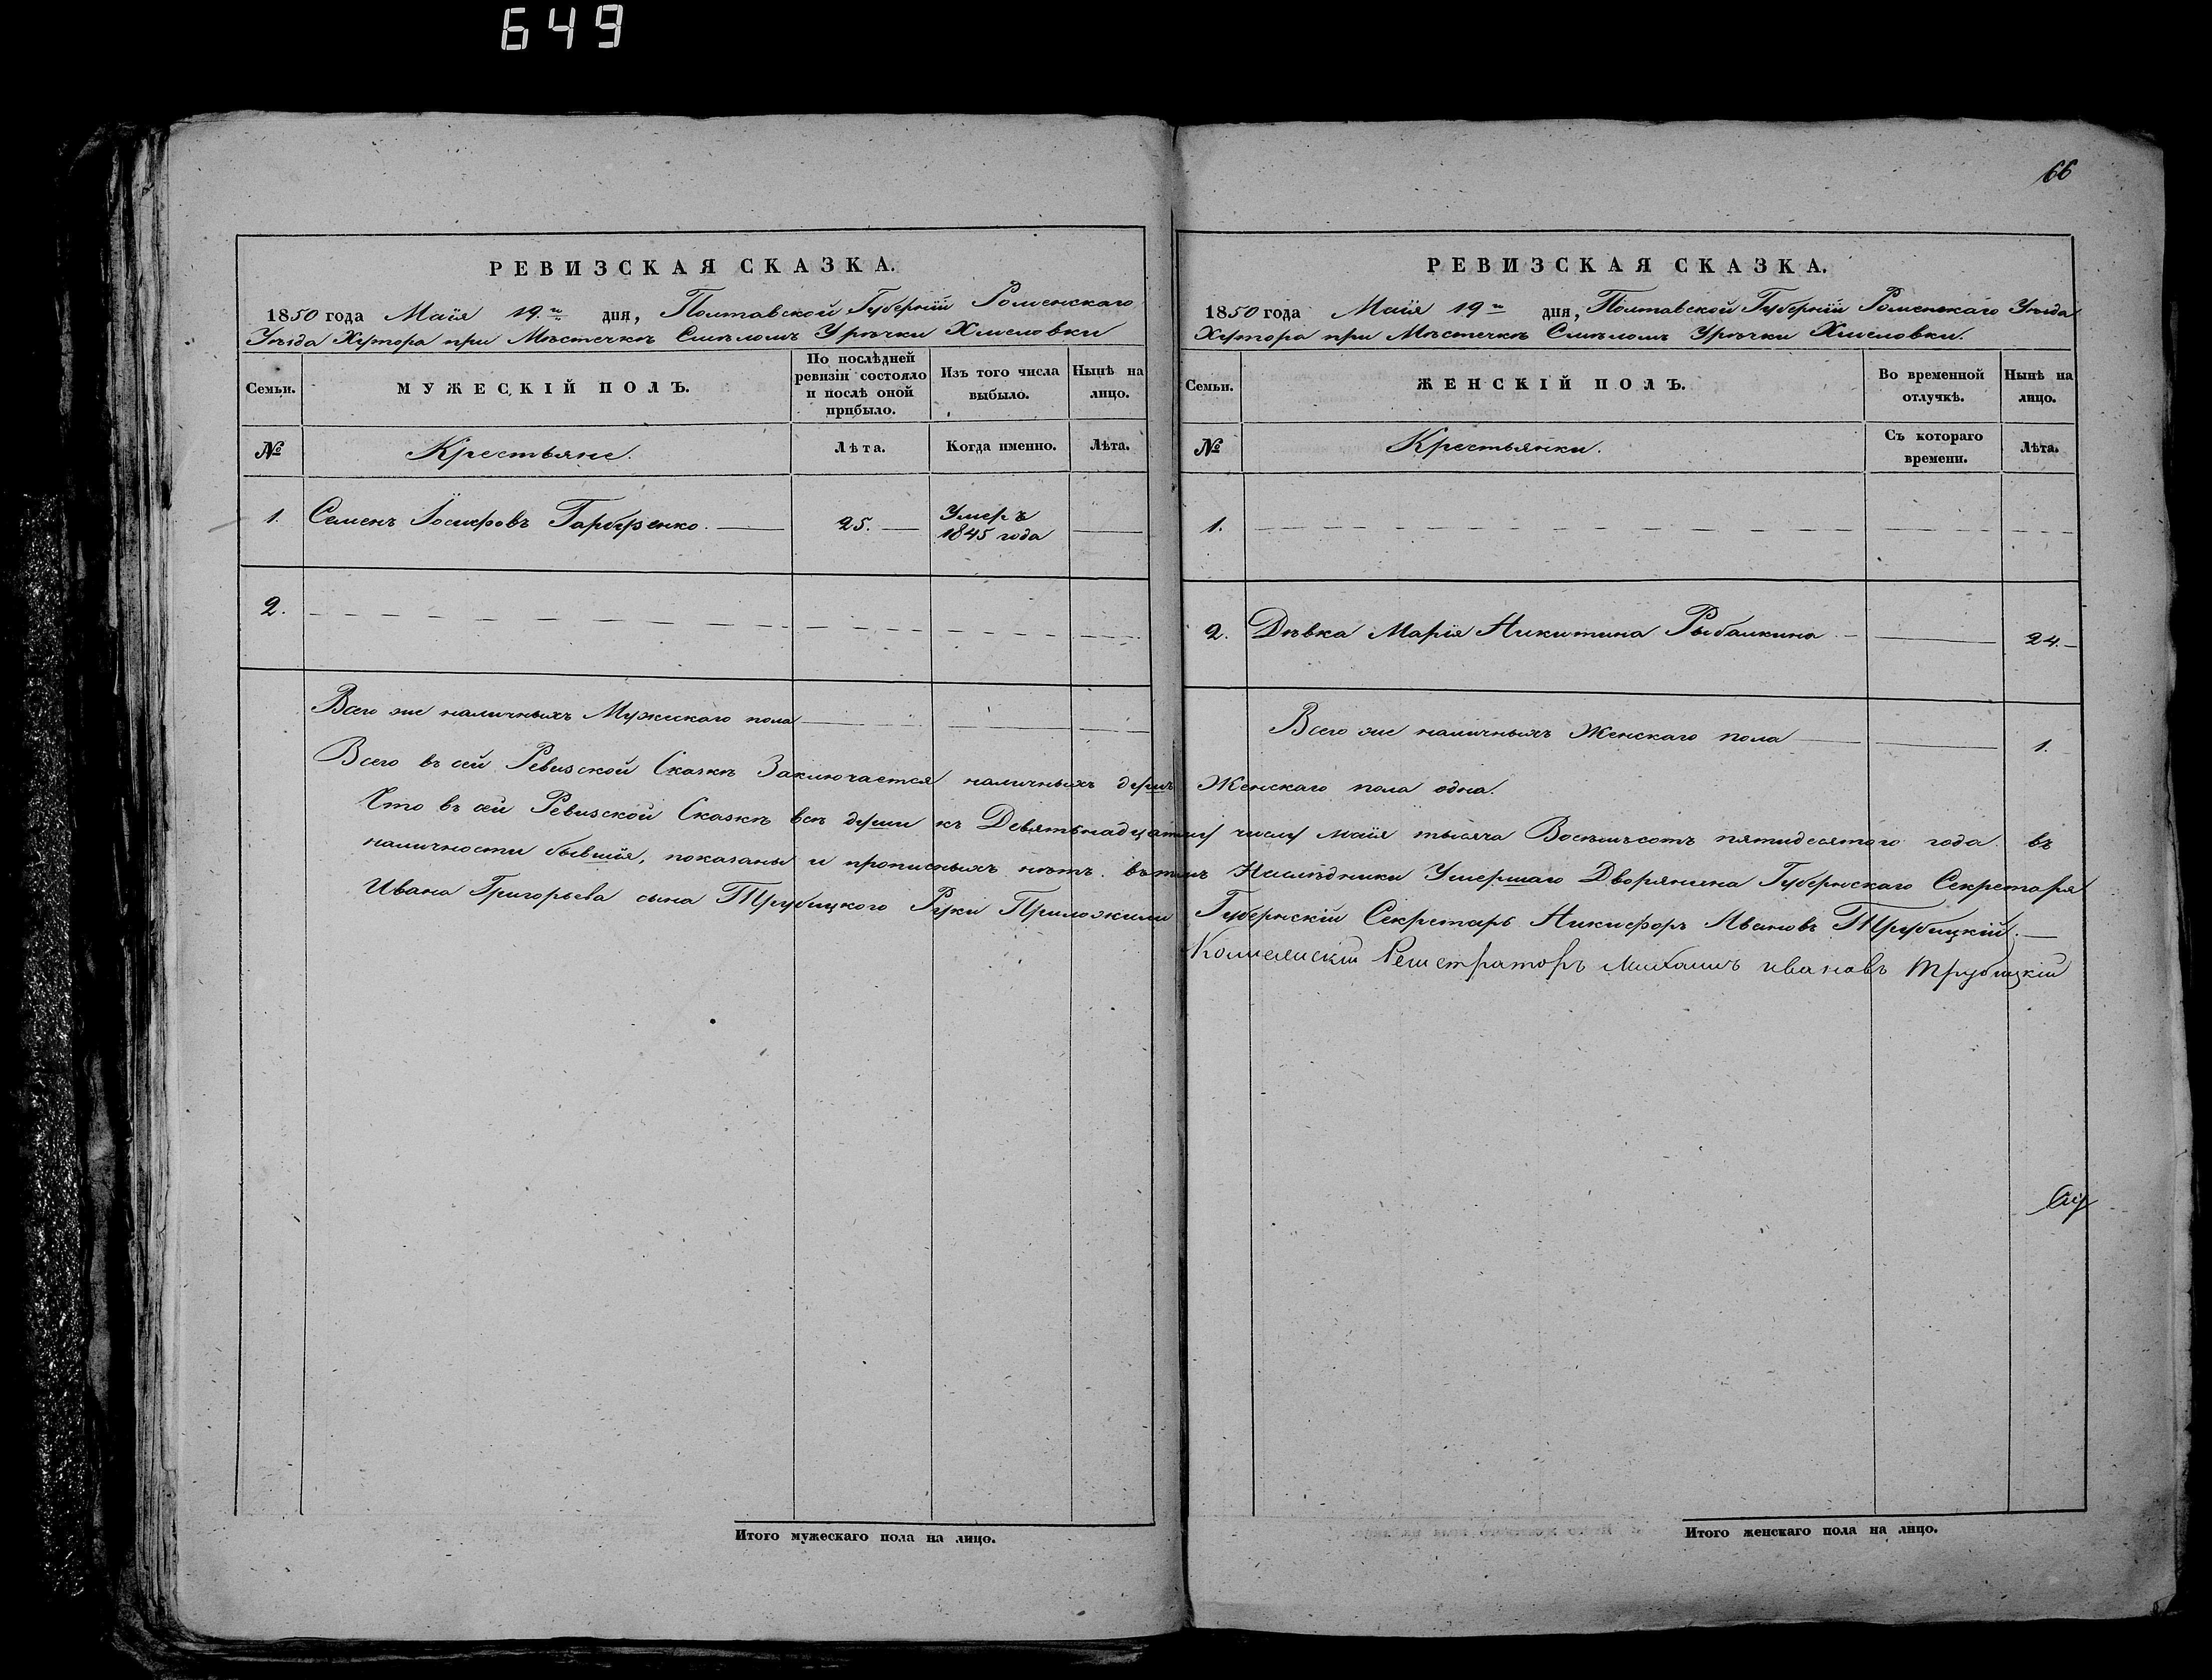 649
66
РЕВИЗСКАЯ СКАЗКА.
1850 года Маія 19.го дня, Полтавской Губерніи Роменскаго
Уѣзда Хутора при Мѣстечкѣ Смѣломъ Урѣчки Хмеловки
Семьи.
МУЖЕСКІЙ ПОЛЪ.
По послѣдней ревизіи состояло и послѣ оной прибыло.
Изъ того числа выбыло.
Нынѣ на лицо.
№
Крестьяне.
Лѣта.
Когда именно.
Лѣта.
1. Семенъ Іосифовъ 25. Умеръ 1845 года
2.
Всего же наличныхъ Мужескаго пола
РЕВИЗСКАЯ СКАЗКА.
1850 года Маія 19го дня, Полтавской Губерніи Роменскаго Уѣзда
Хутора при Мѣстечкѣ Смѣломъ Урѣчки Хмеловки.
Семьи.
ЖЕНСКІЙ ПОЛЪ.
Во временной отлучкѣ.
Нынѣ на лицо.
№
Крестьянки.
Съ котораго времени.
Лѣта.
1.
2. Дѣвка Марія Никитина Рыбалкина 24.
Всего же наличныхъ Женскаго пола 1.
Всего въ сей Ревизской Сказкѣ Заключается наличныхъ душъ Женскаго пола одна.
Что въ сей Ревизской Сказкѣ всѣ души къ Девятьнадцатому числу маія тысяча Восемьсотъ пятидесятого года въ
наличности бывшія, показаны и прописныхъ нѣтъ. вътомъ Наслѣдники Умершаго Дворянина Губернскаго Секретаря
Ивана Григорьева сына Трубицкого Руки Приложили Губернскій Секретарь Никифоръ Ивановъ Трубицкій.
Колежскій Регистраторъ Михаилъ ивановъ Трубицкій
Итого мужескаго пола на лицо.
Итого женскаго пола на лицо.